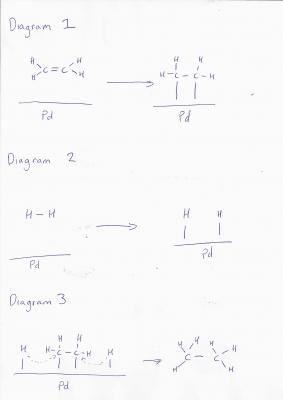 Diagram 1
H H H H
H C = C H H - C - C - H
Pd Pd
Diagram 2
H - H H H
Pd Pd
Diagram 3
H H H H H H H
H - C - C - H C - C
Pd H H